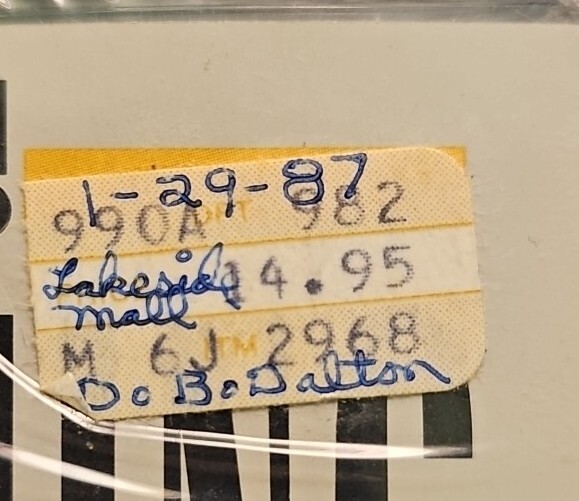 1-29-87
990A DPT 982
Lakeside 14.95
Mall
M 6J ITM 2968
D. B. Dalton